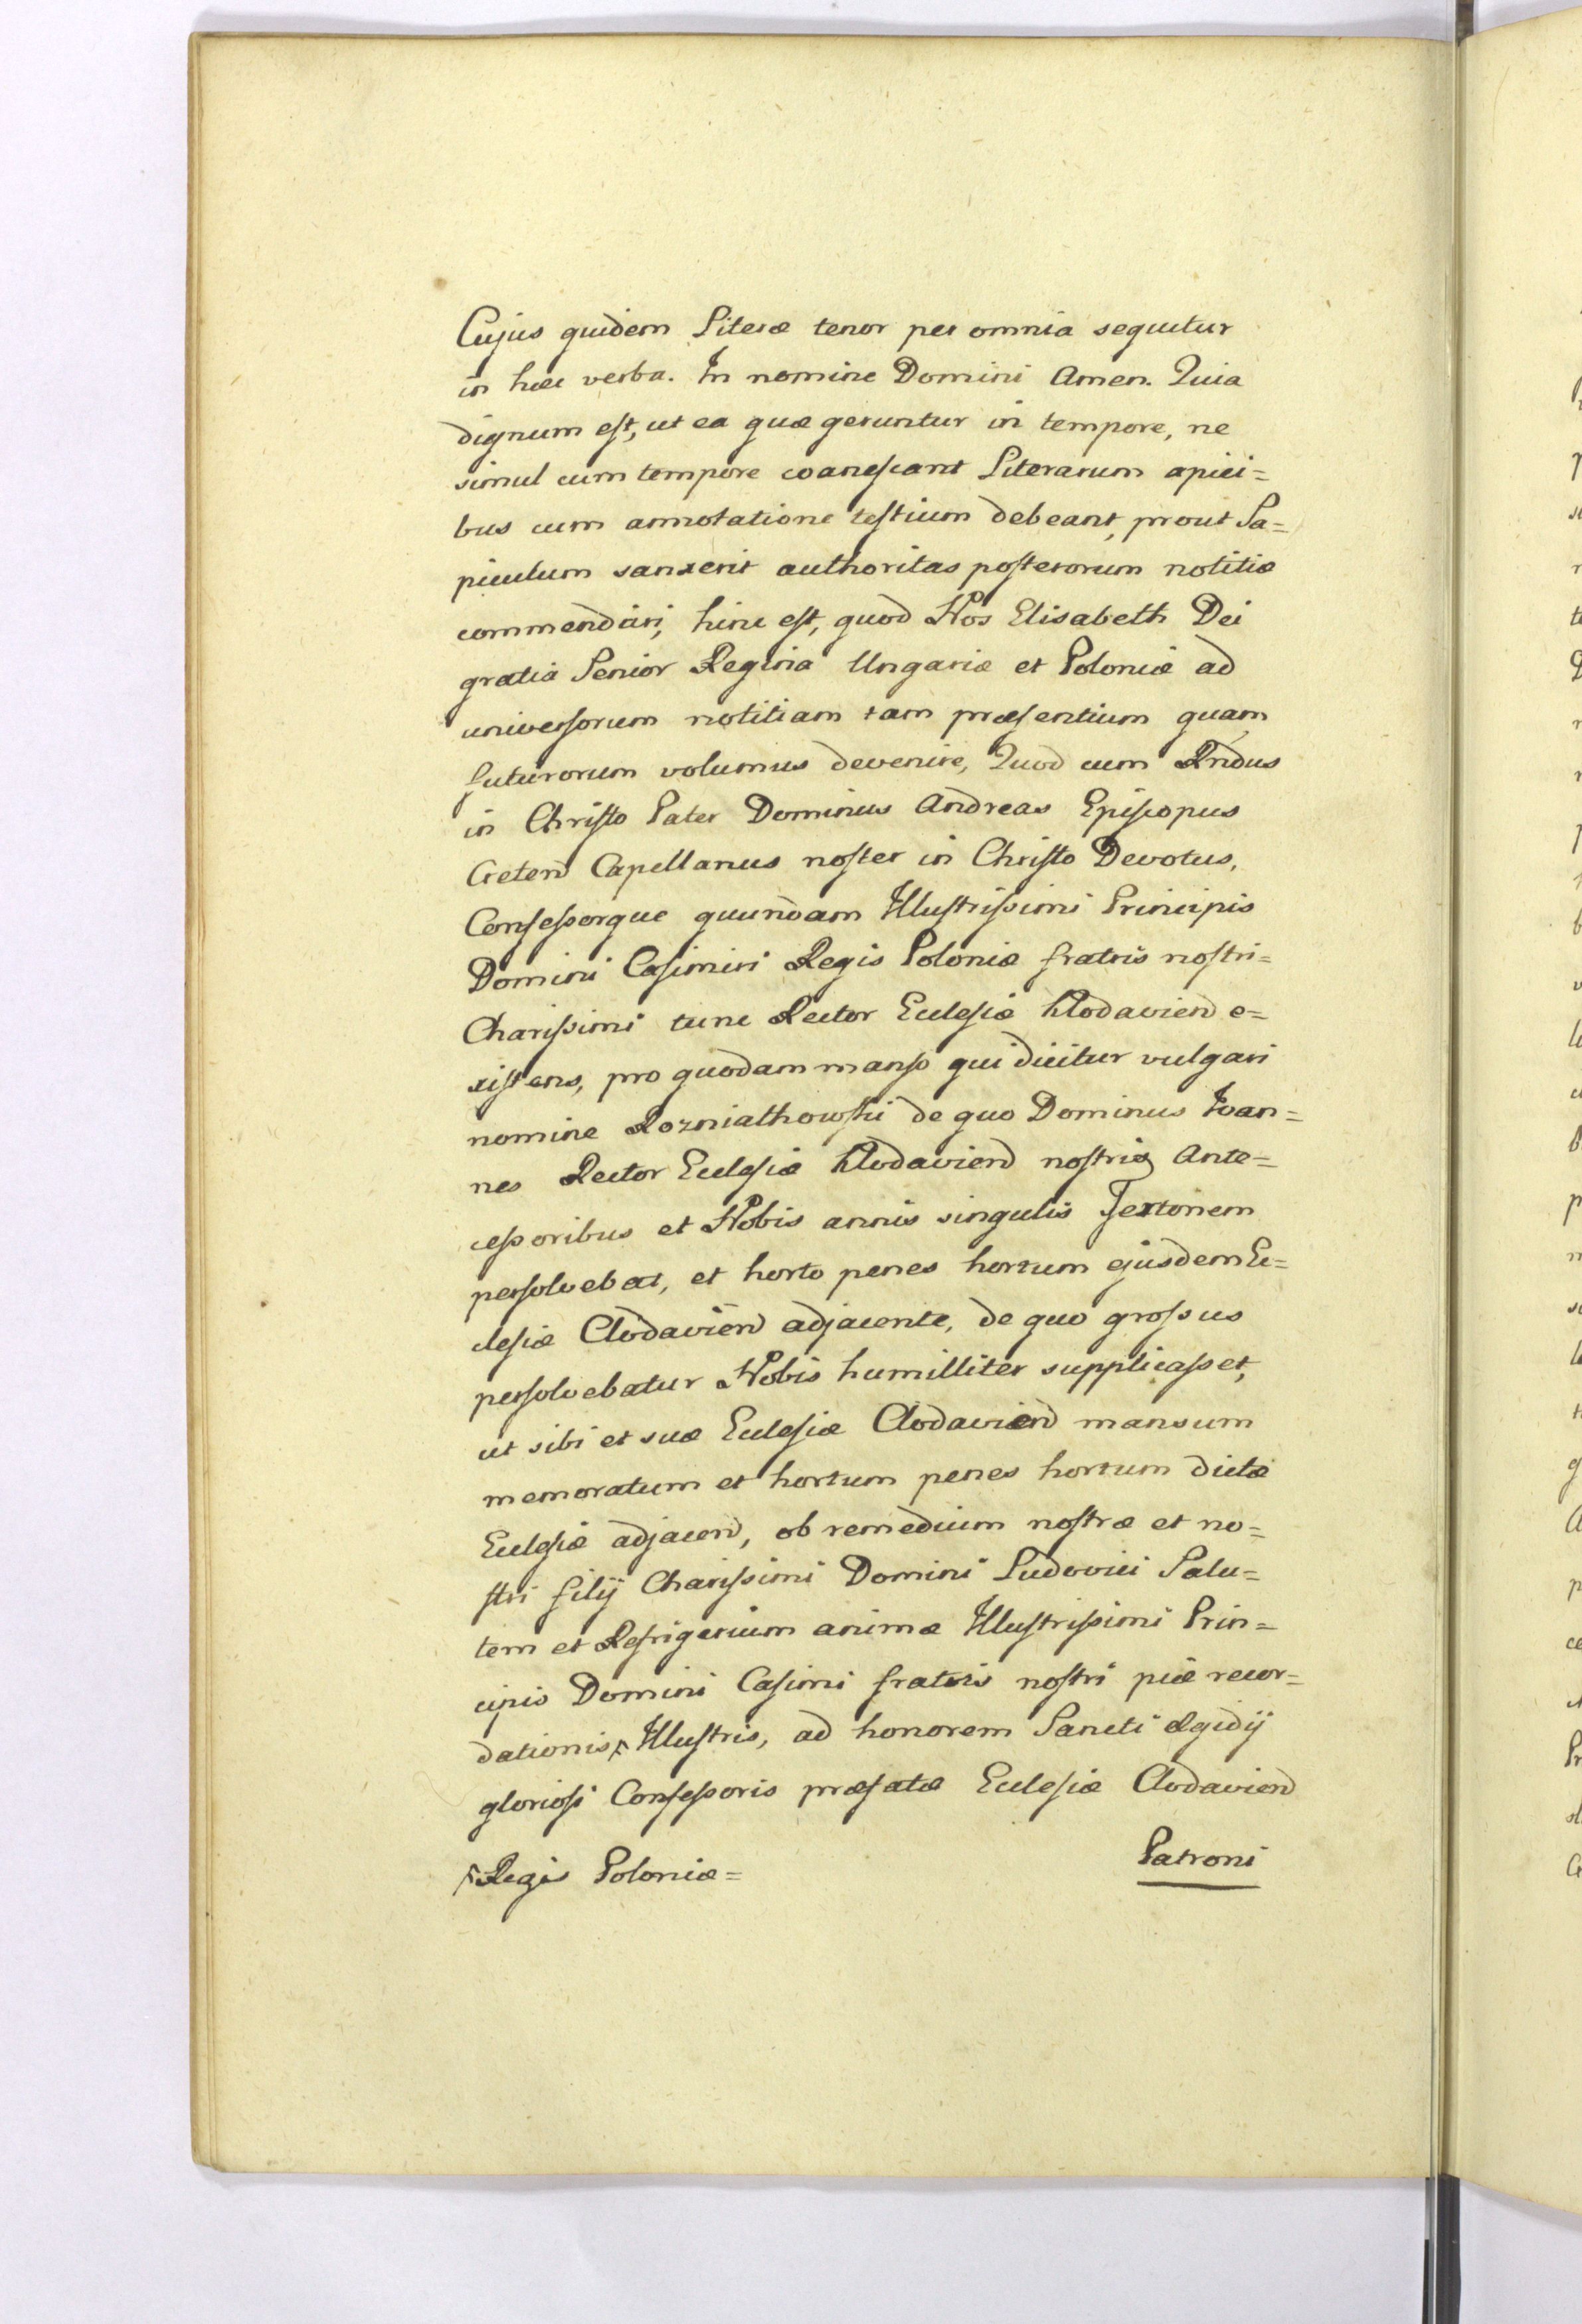 Cujus quidem Literæ tenor per omnia sequitur
in hæc verba. In nomine Domini Amen. Quia
dignum est, ut ea quæ geruntur in tempore, ne
simul cum tempore coanescant Literarum apici=
bus cum annotatione testium debeant, prout Sa=
picutum sanxerit authoritas posterorum notitiæ
commendari, hinc est, quod Nos Elisabeth Dei
gratia Senior Regina Ungariæ et Poloniæ ad
universorum notitiam tam præsentium quam
futurorum volumus devenire, Quod cum Rndus
in Christo Pater Dominus Andreas Episcopus
Ceteren Capellanus noster in Christo Devotus,
Confessorque quundam Illustrissimi Principis
Domini Casimiri Regis Poloniæ fratris nostri=
Charissimi tunc Rector Ecclesiæ Klodavien e=
xistens, pro quodam manso qui dicitur vulgari
nomine Rozniathowski de quo Dominus Ioan=
nes Rector Ecclesiæ Klodavien nostris Ante=
cessoribus et Nobis annis singulis Sextonem
persolvebat, et horto penes hortum ejusdem Ec=
clesiæ Clodavien adjacente, de quo grossus
persolvebatur Nobis humilliter supplicasset,
ut sibi et suæ Ecclesiæ Clodavien mansum
memoratum et hortum penes hortum dictæ
Ecclesiæ adjacen, ob remedium nostræ et no=
stri filij Charissimi Domini Ludovici Salu=
tem et Refrigerium animæ Illustrissimi Prin=
cipis Domini Casimi fratris nostri piæ recor=
dationis Illustris, ad honorem Sancti Ægidij
gloriosi Confessoris præfatæ Ecclesiæ Clodavien
Patroni
Regis Poloniæ=